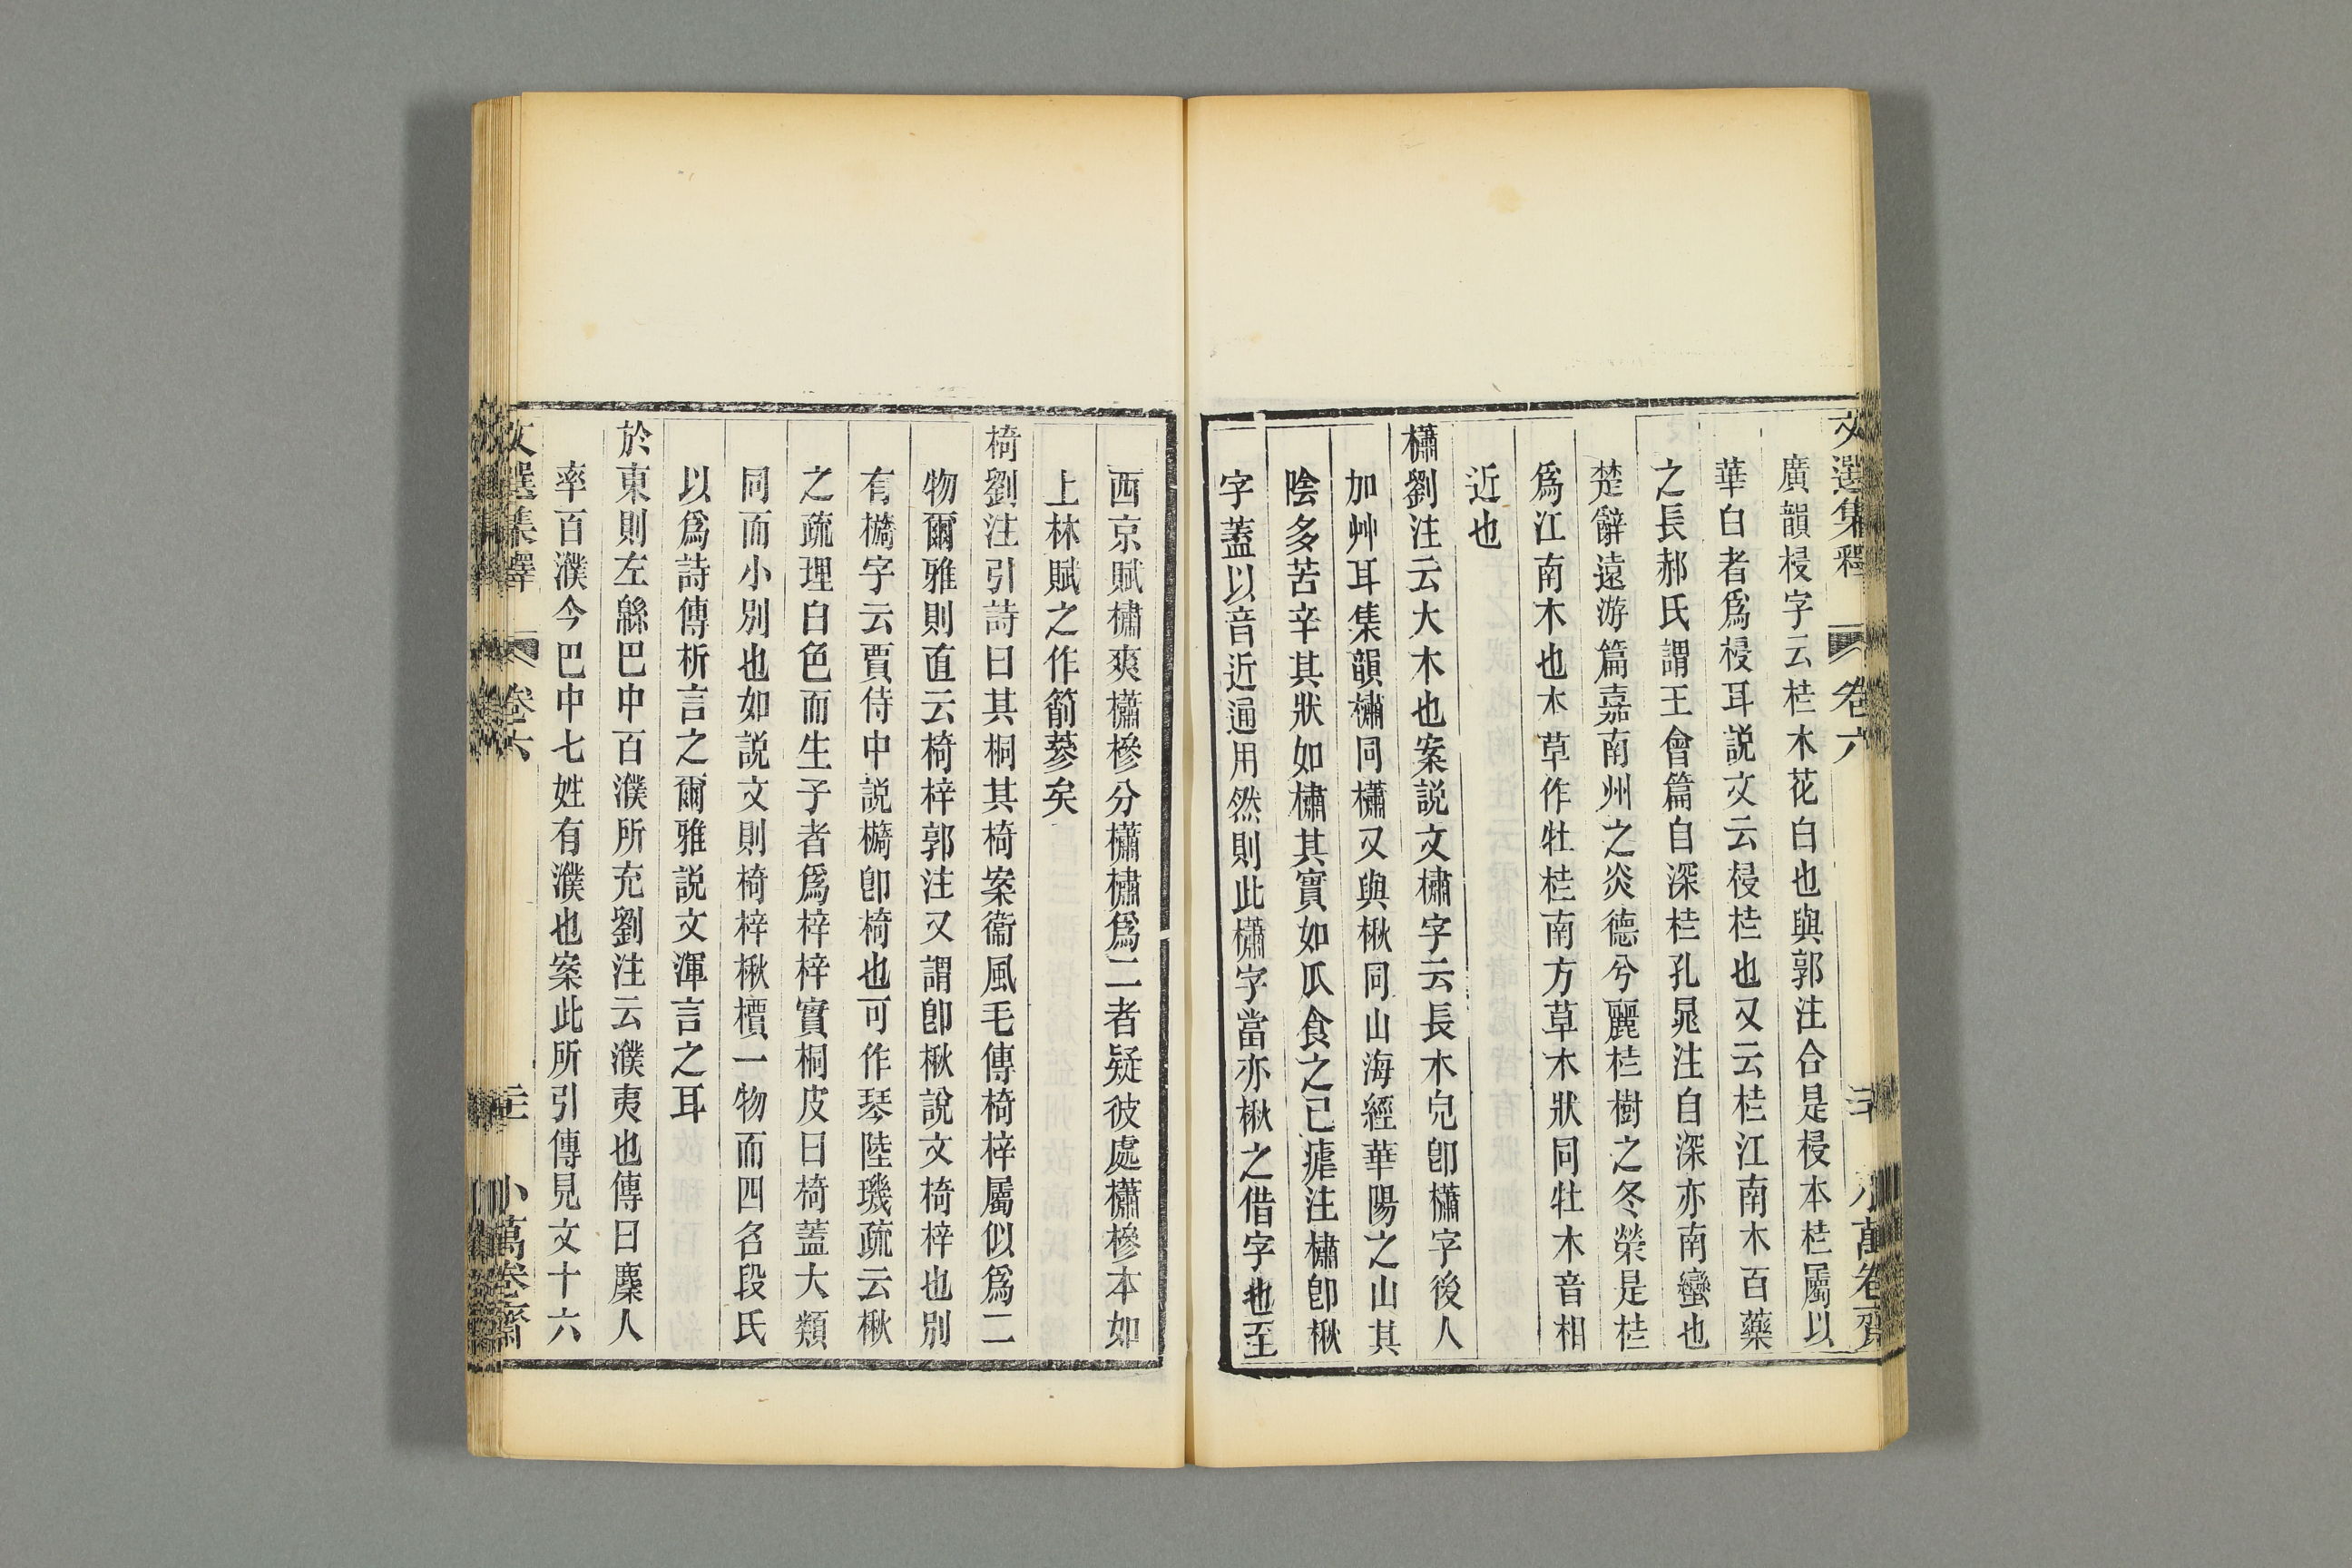 文選集釋 卷六 三十 小萬卷齋
廣韻梫字云桂木花白也與郭注合是梫本桂屬以
華白者爲梫耳説文云梫桂也又云桂江南木百藥
之長郝氏謂王會篇自深桂孔晁注自深亦南蠻也
楚辭遠游篇嘉南州之炎德兮麗桂樹之冬榮是桂
爲江南木也本草作牡桂南方草木狀同牡木音相
近也
櫹劉注云大木也案説文橚字云長木皃卽櫹字後人
加艸耳集韻橚同櫹又與楸同山海經華陽之山其
陰多苦辛其狀如橚其實如瓜食之已瘧注橚卽楸
字蓋以音近通用然則此櫹字當亦楸之借字也至
西京賦橚爽櫹槮分櫹橚爲二者疑彼處櫹槮本如
上林賦之作箾蔘矣
椅劉注引詩曰其桐其椅案衞風毛傳椅梓屬似爲二
物爾雅則直云椅梓郭注又謂卽楸說文椅梓也別
有檹字云賈侍中説檹卽椅也可作琴陸璣疏云楸
之疏理白色而生子者爲梓梓實桐皮曰椅蓋大類
同而小別也如説文則椅梓楸檟一物而四名段氏
以爲詩傳析言之爾雅説文渾言之耳
於東則左緜巴中百濮所充劉注云濮夷也傳曰麇人
率百濮今巴中七姓有濮也案此所引傳見文十六
文選集釋 卷六 小萬卷齋